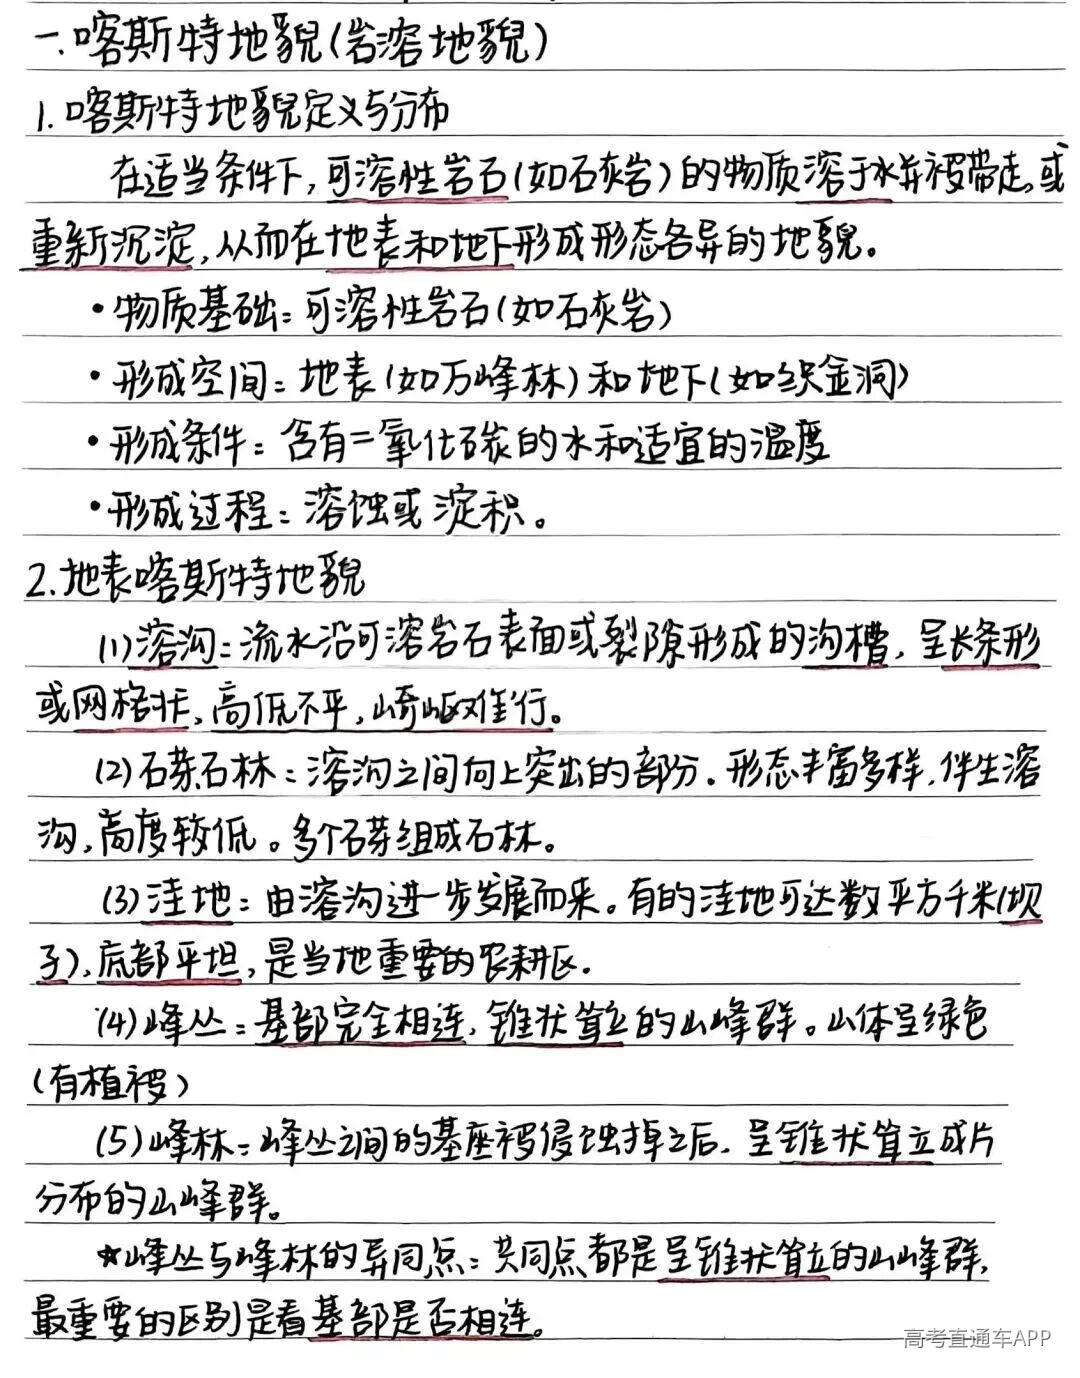 一.喀斯特地貌(岩溶地貌)
1.喀斯特地貌定义与分布
在适当条件下,可溶性岩石(如石灰岩)的物质溶于水并被带走,或
重新沉淀,从而在地表和地下形成形态各异的地貌。
·物质基础:可溶性岩石(如石灰岩)
·形成空间:地表(如万峰林)和地下(如织金洞)
·形成条件:含有二氧化碳的水和适宜的温度
·形成过程:溶蚀或淀积。
2.地表喀斯特地貌
(1)溶沟:流水沿可溶岩石表面或裂隙形成的沟槽,呈长条形
或网格状,高低不平,崎岖难行。
(2)石芽石林:溶沟之间向上突出的部分.形态丰富多样,伴生溶
沟,高度较低。多个石芽组成石林。
(3)洼地:由溶沟进一步发展而来。有的洼地可达数平方千米(坝
子),底部平坦,是当地重要的农耕区.
(4)峰丛:基部完全相连,锥状耸立的山峰群。山体呈绿色
(有植被)
(5)峰林:峰丛之间的基座被侵蚀掉之后,呈锥状耸立成片
分布的山峰群。
★峰丛与峰林的异同点:共同点都是呈锥状耸立的山峰群,
最重要的区别是看基部是否相连。
高考直通车APP